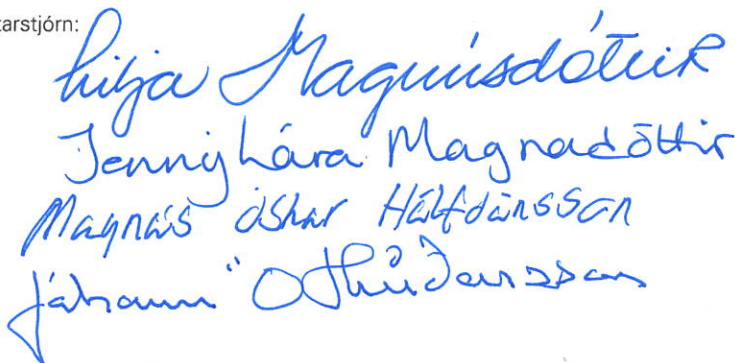 tarstjórn:
Lilja Magnúsdóttir
Jenny Lára Magnadóttir
Magnús Óskar Hálfdánsson
Jóhann